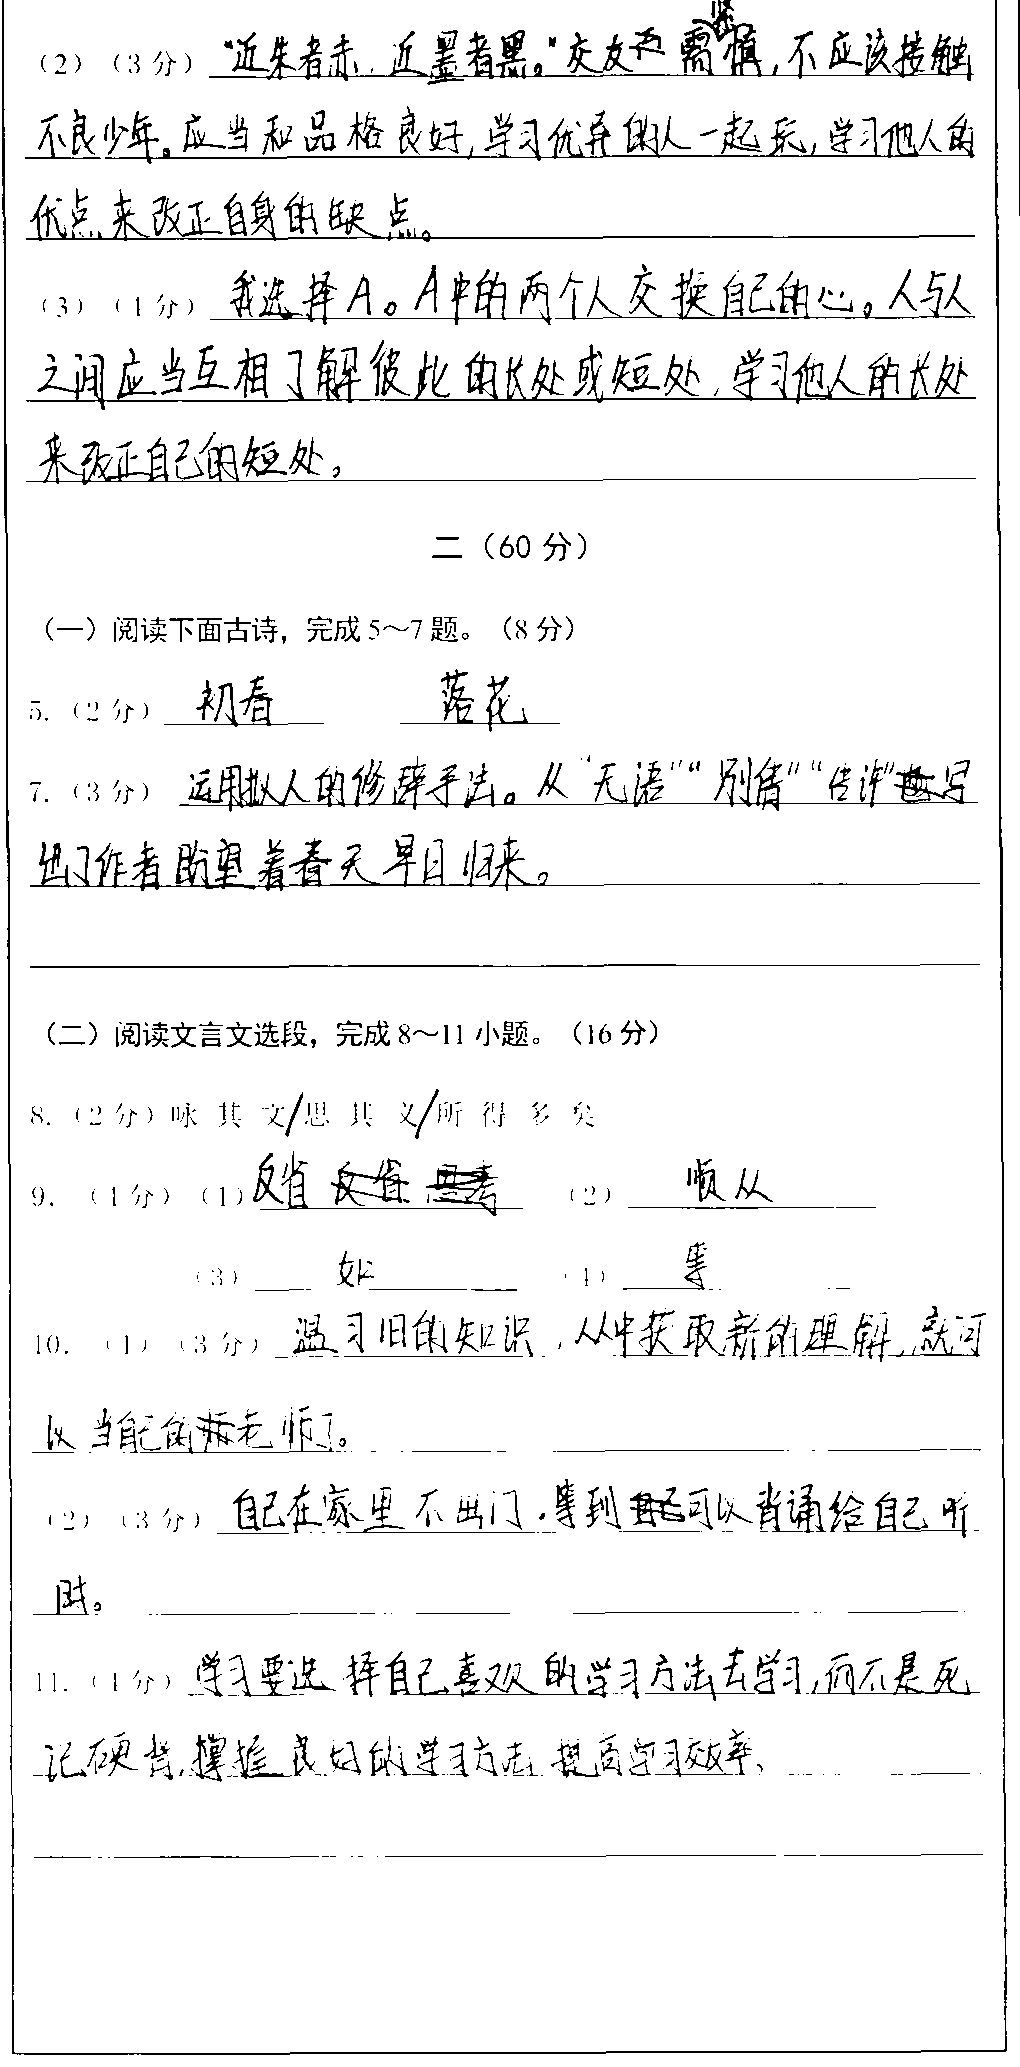 （2）（3分）“近朱者赤，近墨者黑。”交友需谨慎，不应该接触
不良少年。应当和品格良好，学习优异的人一起玩，学习他人的
优点来改正自身的缺点。
（3）（4分）我选择A。A中的两个人交换自己的心。人与人
之间应当互相了解彼此的长处或短处，学习他人的长处
来改正自己的短处。
二（60分）
（一）阅读下面古诗，完成5～7题。（8分）
5.（2分）初春 落花
7.（3分）运用拟人的修辞手法。从“无语”“别倩”“传评”写
出了作者盼望着春天早日归来。
（二）阅读文言文选段，完成8～11小题。（16分）
8.（2分）咏其文/思其义/所得多矣
9.（4分）（1）反省 （2）顺从
（3）如 （4）等
10.（1）（3分）温习旧的知识，从中获取新的理解，就可
以当自己的老师了。
（2）（3分）自己在家里不出门，等到可以背诵给自己听
时。
11.（4分）学习要选择自己喜欢的学习方法去学习，而不是死
记硬背，掌握良好的学习方法，提高学习效率、